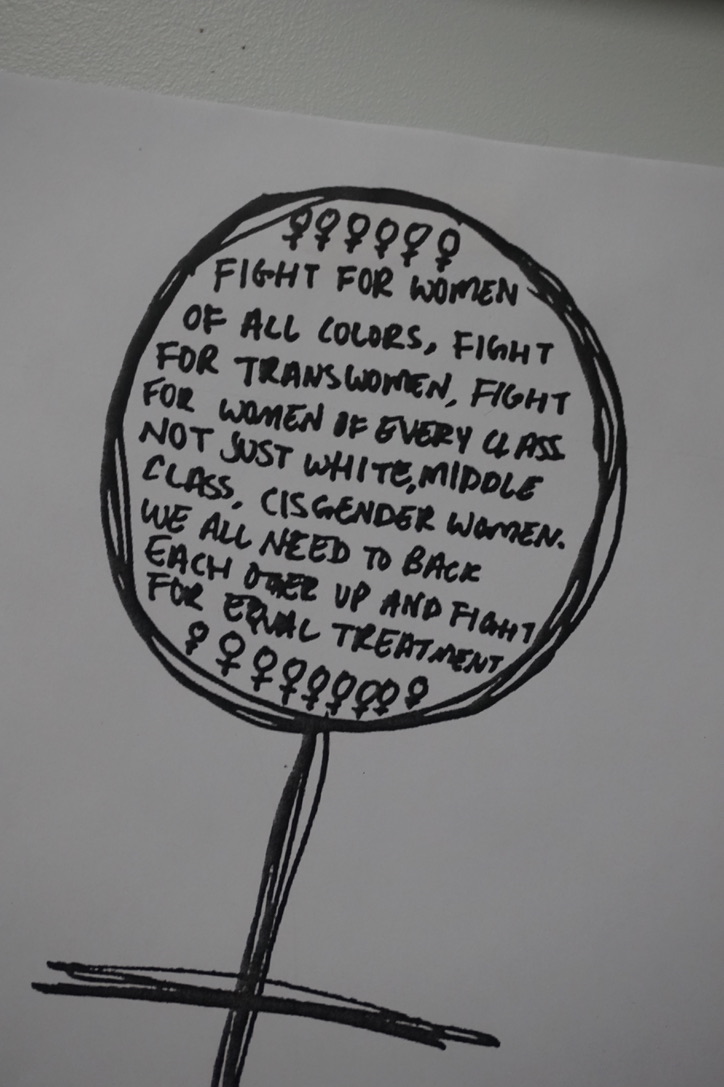 ♀♀♀♀♀♀
FIGHT FOR WOMEN
OF ALL COLORS, FIGHT
FOR TRANSWOMEN, FIGHT
FOR WOMEN OF EVERY CLASS
NOT JUST WHITE, MIDDLE
CLASS, CISGENDER WOMEN.
WE ALL NEED TO BACK
EACH OTHER UP AND FIGHT
FOR EQUAL TREATMENT
♀♀♀♀♀♀♀♀♀